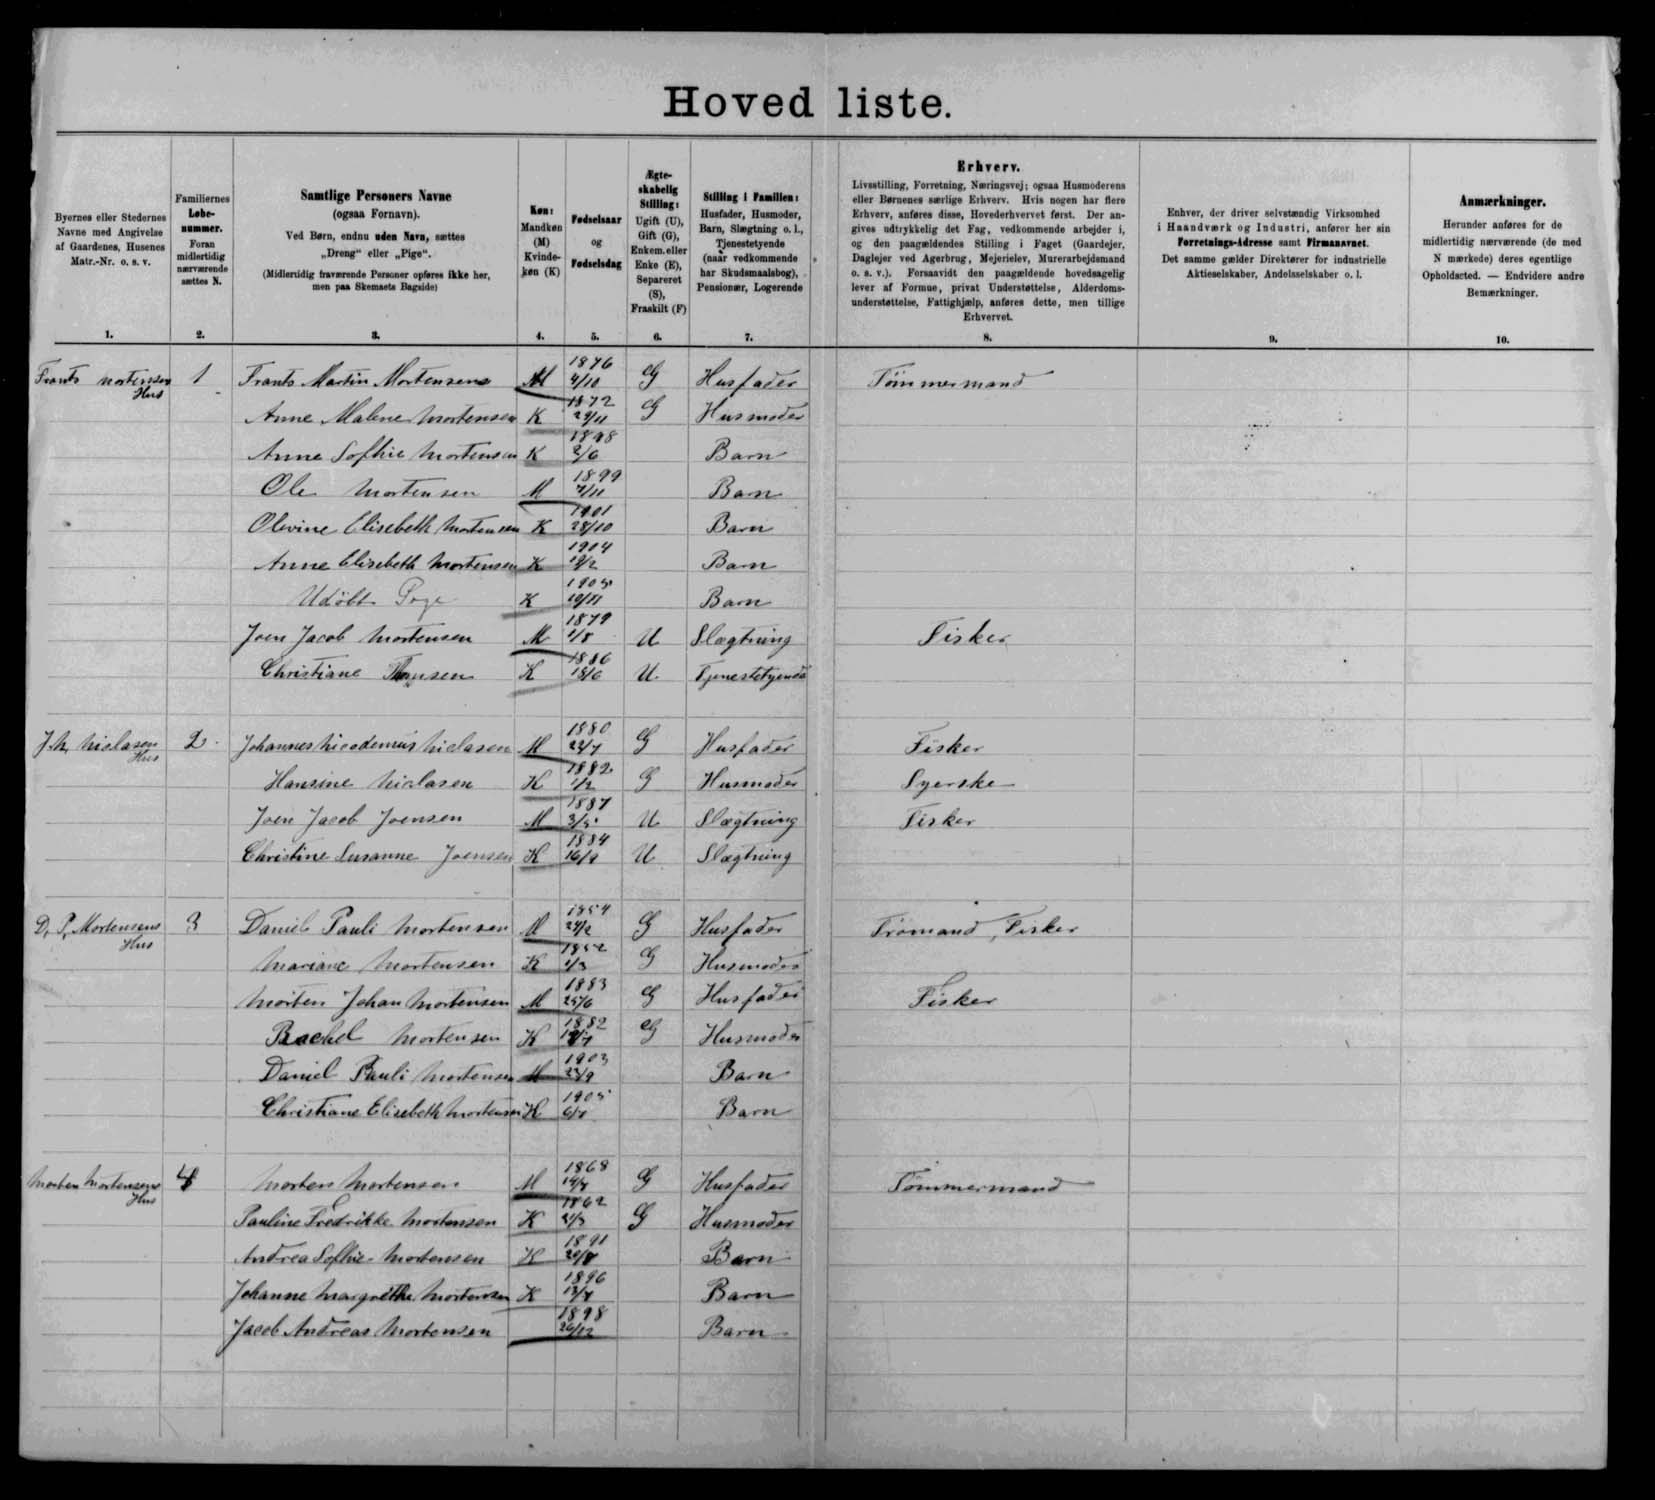 Hoved liste.
Byernes eller Stedernes
Navne med Angivelse
af Gaardenes, Husenes
Matr.-Nr. o. s. v.
1.
Familiernes
Løbe-
nummer.
Foran
midlertidig
nærværende
sættes N.
2.
Samtlige Personers Navne
(ogsaa Fornavn).
Ved Børn, endnu uden Navn, sættes
„Dreng“ eller „Pige“.
(Midlertidig fraværende Personer opføres ikke her,
men paa Skemaets Bagside)
3.
Køn:
Mandkøn
(M)
Kvinde-
køn (K)
4.
Fødselsaar
og
Fødselsdag
5.
Ægte-
skabelig
Stilling:
Ugift (U),
Gift (G),
Enkem.eller
Enke (E),
Separeret
(S),
Fraskilt (F)
6.
Stilling i Familien:
Husfader, Husmoder,
Barn, Slægtning o. l.,
Tjenestetyende
(naar vedkommende
har Skudsmaalsbog),
Pensionær, Logerende
7.
Erhverv.
Livsstilling, Forretning, Næringsvej; ogsaa Husmoderens
eller Børnenes særlige Erhverv. Hvis nogen har flere
Erhverv, anføres disse, Hovederhvervet først. Der an-
gives udtrykkelig det Fag, vedkommende arbejder i,
og den paagældendes Stilling i Faget (Gaardejer,
Daglejer ved Agerbrug, Mejerielev, Murerarbejdsmand
o. s. v.). Forsaavidt den paagældende hovedsagelig
lever af Formue, privat Understøttelse, Alderdoms-
understøttelse, Fattighjælp, anføres dette, men tillige
Erhvervet.
8.
Enhver, der driver selvstændig Virksomhed
i Haandværk og Industri, anfører her sin
Forretnings-Adresse samt Firmanavnet.
Det samme gælder Direktører for industrielle
Aktieselskaber, Andelsselskaber o. l.
9.
Anmærkninger.
Herunder anføres for de
midlertidig nærværende (de med
N mærkede) deres egentlige
Opholdssted. — Endvidere andre
Bemærkninger.
10.
Frants Mortensen Hus 1 Frants Martin Mortensen M 1876 4/10 G Husfader Tømmermand
Anne Malene Mortensen K 1872 29/11 G Husmoder
Anne Sofhie Mortensen K 1898 2/6 Barn
Ole Mortensen M 1899 7/11 Barn
Olevine Elisebeth Mortensen K 1901 28/10 Barn
Anne Elisebeth Mortensen K 1904 19/2 Barn
Udøbt Pige K 1905 10/11 Barn
Joen Jacob Mortensen M 1879 1/8 U Slægtning Fisker
Christiane Hansen K 1886 18/6 U Tjenestetyende
J. N. Niclasen Hus 2 Johannes Nicodemus Niclasen M 1880 22/7 G Husfader Fisker
Hansine Niclasen K 1882 1/2 G Husmoder Syerske
Joen Jacob Joensen M 1887 3/5 U Slægtning Fisker
Christine Susanne Joensen K 1884 16/9 U Slægtning
D. P. Mortensens Hus 3 Daniel Pauli Mortensen M 1854 24/2 G Husfader Tromand, Fisker
Mariane Mortensen K 1852 1/3 G Husmoder
Morten Johan Mortensen M 1883 25/6 G Husfader Fisker
Rachel Mortensen K 1882 G Husmoder
Daniel Pauli Mortensen M 1903 22/9 Barn
Christiane Elisebeth Mortensen K 1905 Barn
Morten Mortensens Hus 4 Morten Mortensen M 1868 G Husfader Tømmermand
Pauline Fredrikke Mortensen K 1862 2/3 G Husmoder
Andrea Sofhie Mortensen K 1891 Barn
Johanne Margrethe Mortensen K 1896 Barn
Jacob Andreas Mortensen 1898 26/12 Barn